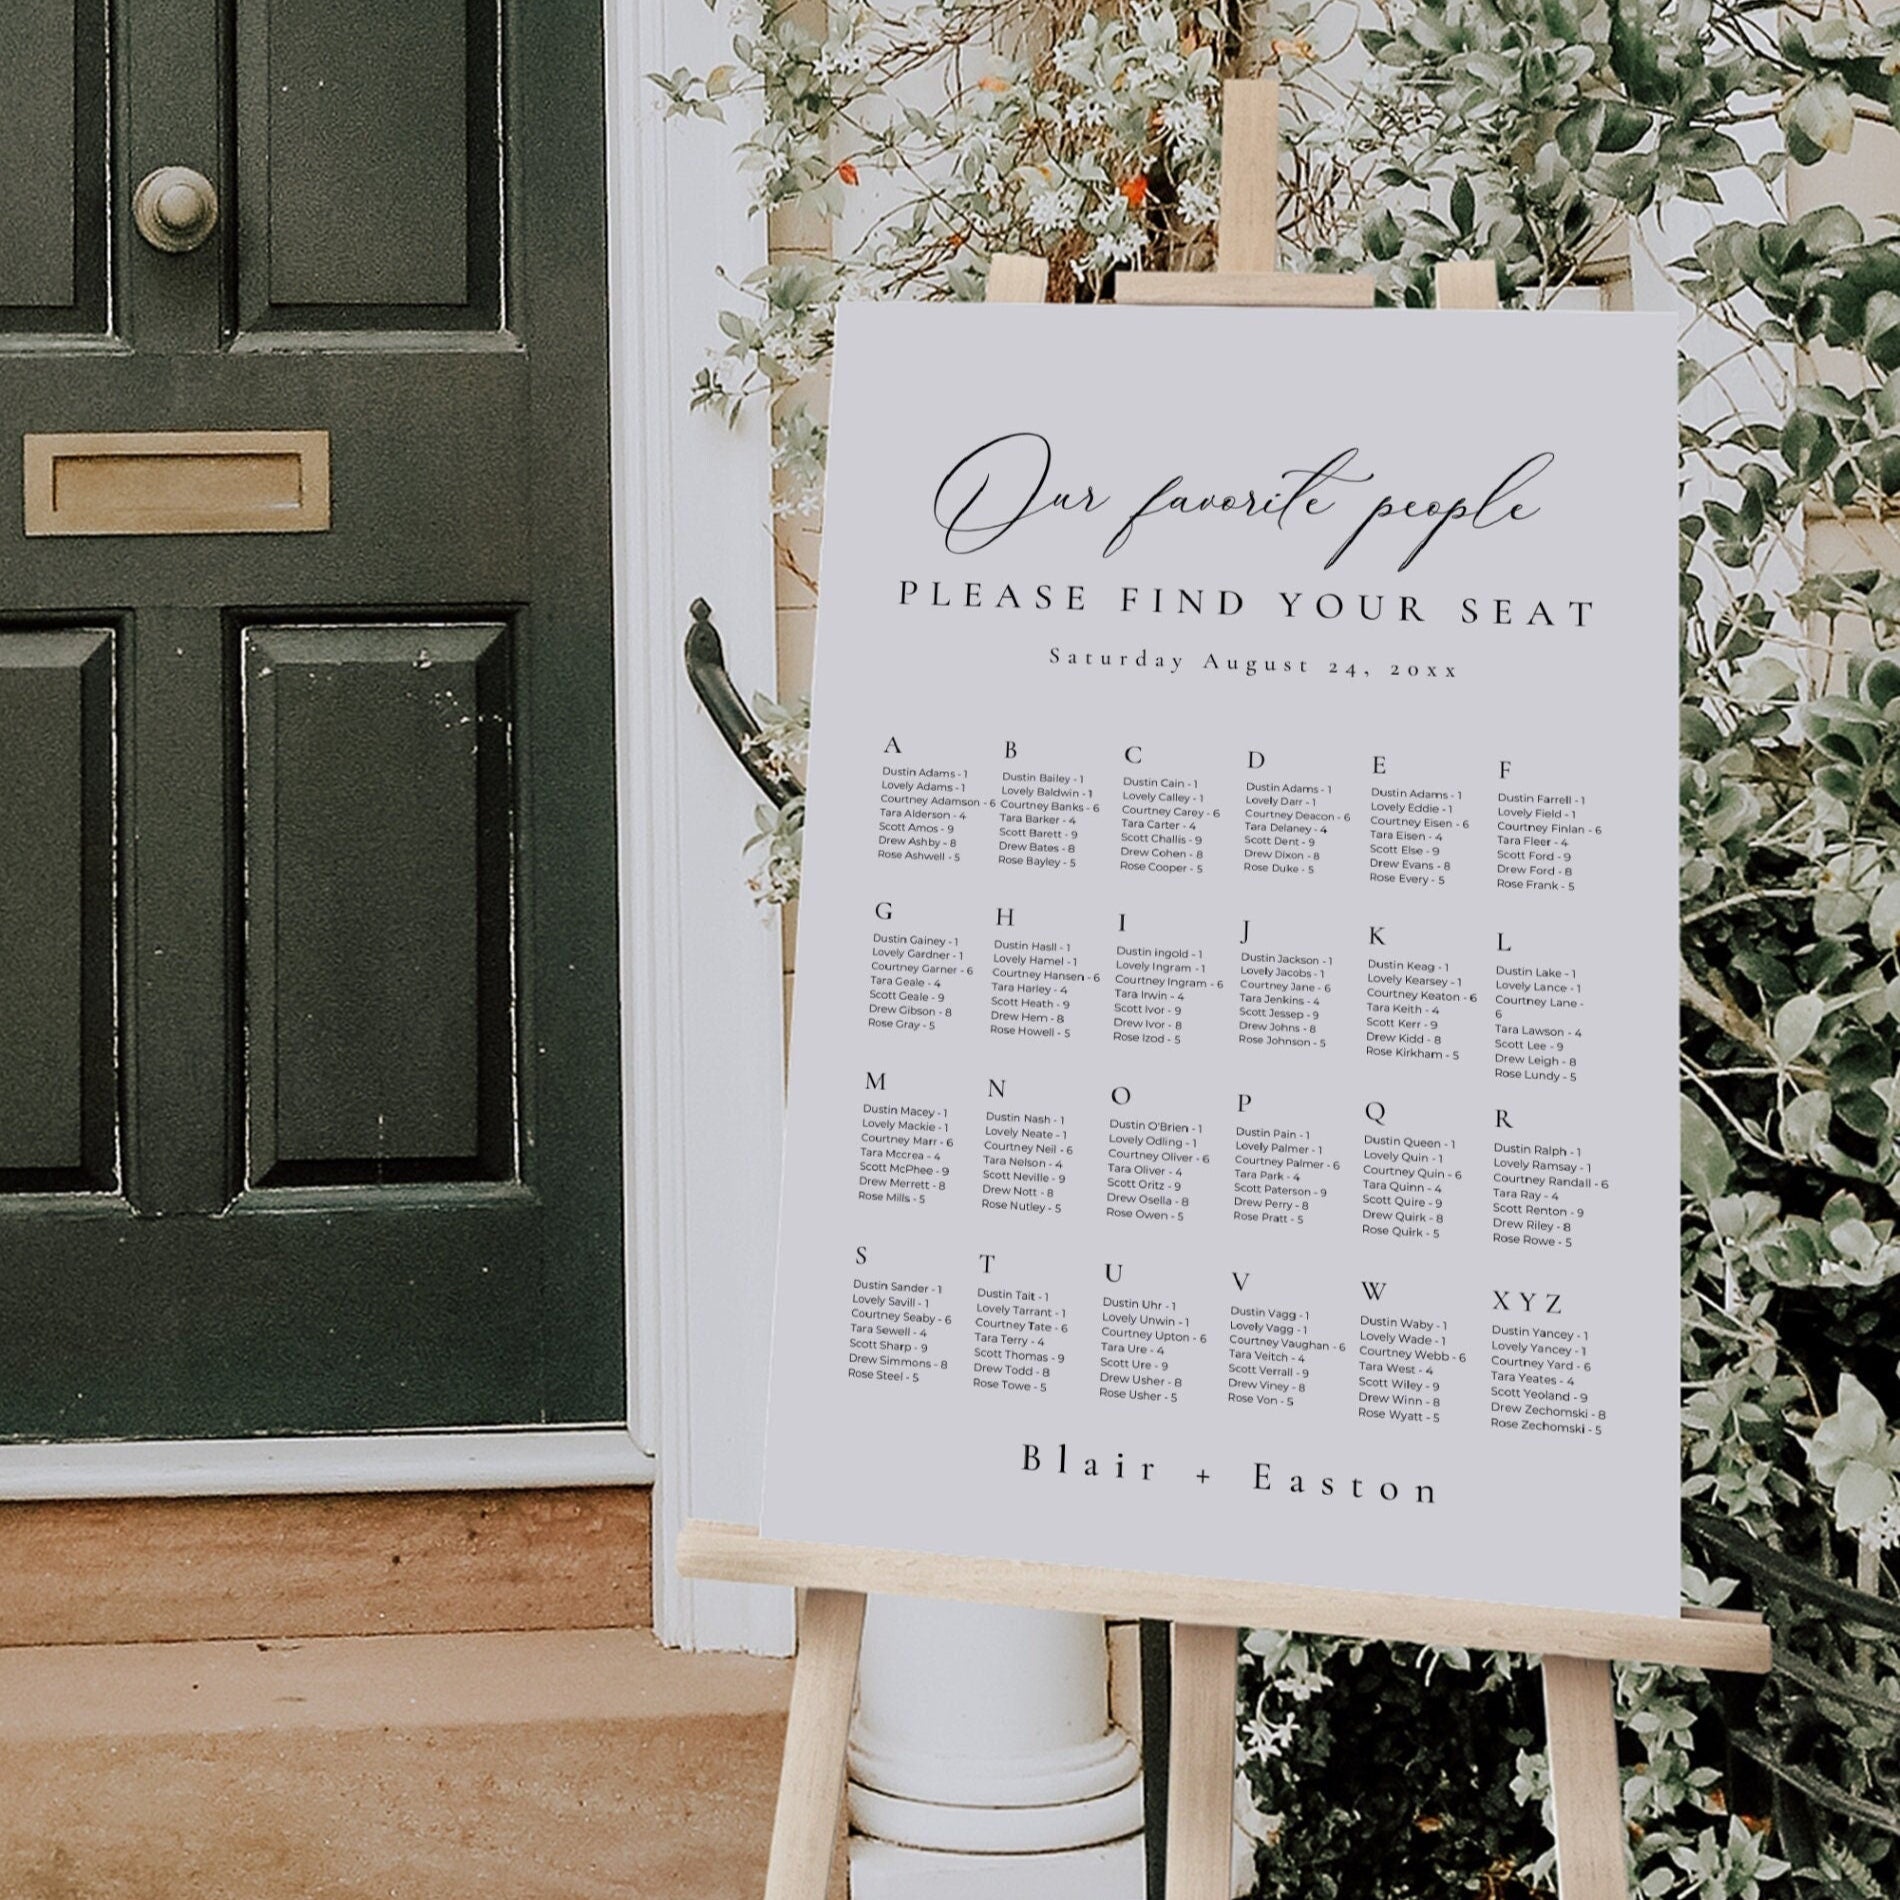 Our favorite people
PLEASE FIND YOUR SEAT
Saturday August 24, 20xx
A
Dustin Adams - 1
Lovely Adams - 1
Courtney Adamson - 6
Tara Alderson - 4
Scott Amos - 9
Drew Ashby - 8
Rose Ashwell - 5
B
Dustin Bailey - 1
Lovely Baldwin - 1
Courtney Banks - 6
Tara Barker - 4
Scott Barett - 9
Drew Bates - 8
Rose Bayley - 5
C
Dustin Cain - 1
Lovely Calley - 1
Courtney Carey - 6
Tara Carter - 4
Scott Challis - 9
Drew Cohen - 8
Rose Cooper - 5
D
Dustin Adams - 1
Lovely Darr - 1
Courtney Deacon - 6
Tara Delaney - 4
Scott Dent - 9
Drew Dixon - 8
Rose Duke - 5
E
Dustin Adams - 1
Lovely Eddie - 1
Courtney Eisen - 6
Tara Eisen - 4
Scott Else - 9
Drew Evans - 8
Rose Every - 5
F
Dustin Farrell - 1
Lovely Field - 1
Courtney Finlan - 6
Tara Fleer - 4
Scott Ford - 9
Drew Ford - 8
Rose Frank - 5
G
Dustin Gainey - 1
Lovely Gardner - 1
Courtney Garner - 6
Tara Geale - 4
Scott Geale - 9
Drew Gibson - 8
Rose Gray - 5
H
Dustin Hasll - 1
Lovely Hamel - 1
Courtney Hansen - 6
Tara Harley - 4
Scott Heath - 9
Drew Hem - 8
Rose Howell - 5
I
Dustin ingold - 1
Lovely Ingram - 1
Courtney Ingram - 6
Tara Irwin - 4
Scott Ivor - 9
Drew Ivor - 8
Rose Izod - 5
J
Dustin Jackson - 1
Lovely Jacobs - 1
Courtney Jane - 6
Tara Jenkins - 4
Scott Jessep - 9
Drew Johns - 8
Rose Johnson - 5
K
Dustin Keag - 1
Lovely Kearsey - 1
Courtney Keaton - 6
Tara Keith - 4
Scott Kerr - 9
Drew Kidd - 8
Rose Kirkham - 5
L
Dustin Lake - 1
Lovely Lance - 1
Courtney Lane -
6
Tara Lawson - 4
Scott Lee - 9
Drew Leigh - 8
Rose Lundy - 5
M
Dustin Macey - 1
Lovely Mackie - 1
Courtney Marr - 6
Tara Mccrea - 4
Scott McPhee - 9
Drew Merrett - 8
Rose Mills - 5
N
Dustin Nash - 1
Lovely Neate - 1
Courtney Neil - 6
Tara Nelson - 4
Scott Neville - 9
Drew Nott - 8
Rose Nutley - 5
O
Dustin O'Brien - 1
Lovely Odling - 1
Courtney Oliver - 6
Tara Oliver - 4
Scott Oritz - 9
Drew Osella - 8
Rose Owen - 5
P
Dustin Pain - 1
Lovely Palmer - 1
Courtney Palmer - 6
Tara Park - 4
Scott Paterson - 9
Drew Perry - 8
Rose Pratt - 5
Q
Dustin Queen - 1
Lovely Quin - 1
Courtney Quin - 6
Tara Quinn - 4
Scott Quire - 9
Drew Quirk - 8
Rose Quirk - 5
R
Dustin Ralph - 1
Lovely Ramsay - 1
Courtney Randall - 6
Tara Ray - 4
Scott Renton - 9
Drew Riley - 8
Rose Rowe - 5
S
Dustin Sander - 1
Lovely Savill - 1
Courtney Seaby - 6
Tara Sewell - 4
Scott Sharp - 9
Drew Simmons - 8
Rose Steel - 5
T
Dustin Tait - 1
Lovely Tarrant - 1
Courtney Tate - 6
Tara Terry - 4
Scott Thomas - 9
Drew Todd - 8
Rose Towe - 5
U
Dustin Uhr - 1
Lovely Unwin - 1
Courtney Upton - 6
Tara Ure - 4
Scott Ure - 9
Drew Usher - 8
Rose Usher - 5
V
Dustin Vagg - 1
Lovely Vagg - 1
Courtney Vaughan - 6
Tara Veitch - 4
Scott Verrall - 9
Drew Viney - 8
Rose Von - 5
W
Dustin Waby - 1
Lovely Wade - 1
Courtney Webb - 6
Tara West - 4
Scott Wiley - 9
Drew Winn - 8
Rose Wyatt - 5
XYZ
Dustin Yancey - 1
Lovely Yancey - 1
Courtney Yard - 6
Tara Yeates - 4
Scott Yeoland - 9
Drew Zechomski - 8
Rose Zechomski - 5
Blair + Easton